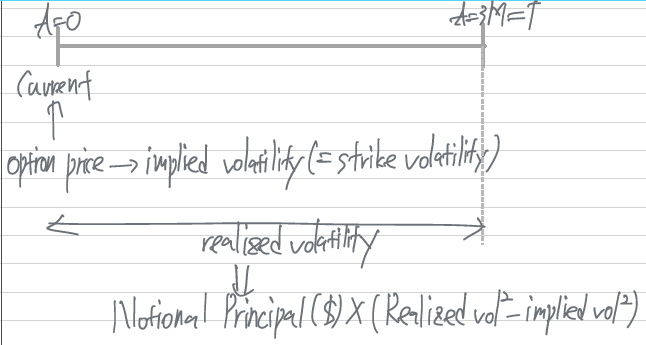 t=0 t=3M=T
Current
option price → implied volatility (= strike volatility)
realized volatility
Notional Principal ($) X (Realized vol² - implied vol²)